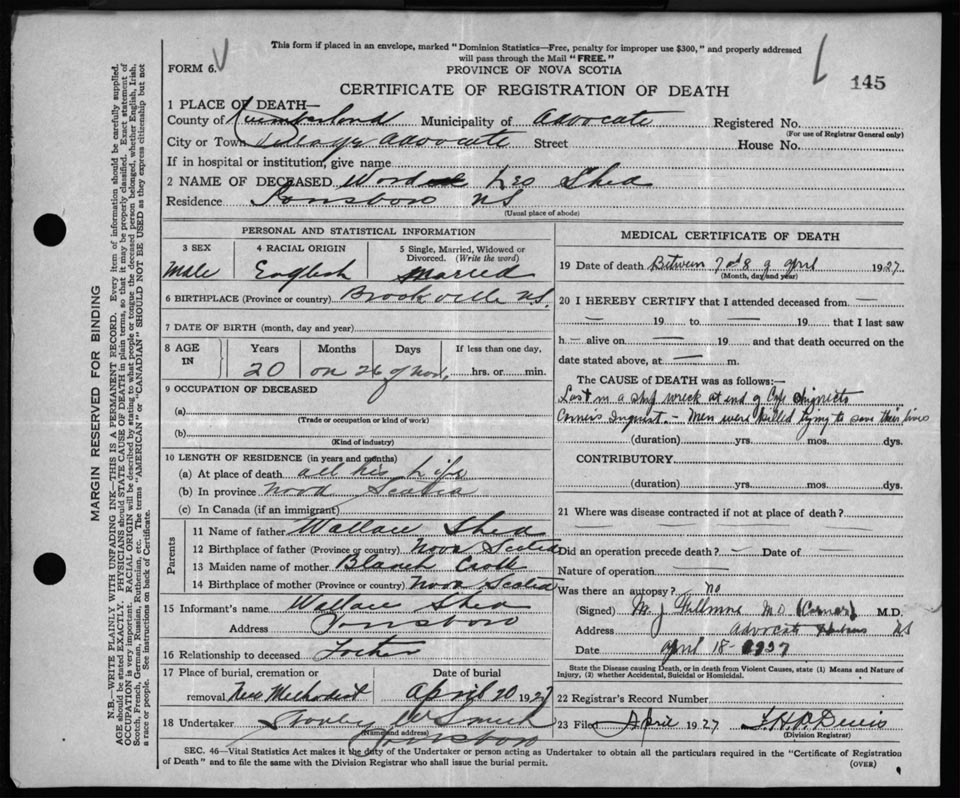 This form if placed in an envelope, marked "Dominion Statistics—Free, penalty for improper use $300," and properly addressed
will pass through the Mail "FREE."
FORM 6.
PROVINCE OF NOVA SCOTIA
145
CERTIFICATE OF REGISTRATION OF DEATH
1 PLACE OF DEATH—
County of Cumberland Municipality of Advocate Registered No.
(For use of Registrar General only)
City or Town Village Advocate Street House No.
If in hospital or institution, give name
2 NAME OF DECEASED Leo Shea
Residence Parrsboro NS
(Usual place of abode)
PERSONAL AND STATISTICAL INFORMATION
3 SEX 4 RACIAL ORIGIN 5 Single, Married, Widowed or
Divorced. (Write the word)
Male English Married
6 BIRTHPLACE (Province or country) Brookville N.S.
7 DATE OF BIRTH (month, day and year)
8 AGE IN Years Months Days If less than one day,
20 on 26 of Nov. hrs. or min.
9 OCCUPATION OF DECEASED
(a)
(Trade or occupation or kind of work)
(b)
(Kind of industry)
10 LENGTH OF RESIDENCE (in years and months)
(a) At place of death all his Life
(b) In province Nova Scotia
(c) In Canada (if an immigrant)
Parents
11 Name of father Wallace Shea
12 Birthplace of father (Province or country) Nova Scotia
13 Maiden name of mother Blanch
14 Birthplace of mother (Province or country) Nova Scotia
15 Informant's name Wallace Shea
Address Parrsboro
16 Relationship to deceased Father
17 Place of burial, cremation or Date of burial
removal New Methodist April 20 1927
18 Undertaker
(Name and address)
Parrsboro
MEDICAL CERTIFICATE OF DEATH
19 Date of death Between 7 and 8 of April 1927
(Month, day and year)
20 I HEREBY CERTIFY that I attended deceased from —
— 19 to — 19 — that I last saw
h — alive on — 19 — and that death occurred on the
date stated above, at — m.
The CAUSE of DEATH was as follows:—
Lost in a ship wreck at end of Cape Chignecto
Inquest — Men were killed trying to save their lives
(duration) yrs. mos. dys.
CONTRIBUTORY
(duration) yrs. mos. dys.
21 Where was disease contracted if not at place of death?
Did an operation precede death? — Date of —
Nature of operation —
Was there an autopsy? no
(Signed) M. J. Fillmore M.D. (Coroner) M.D.
Address Advocate NS
Date April 18 - 1927
State the Disease causing Death, or in death from Violent Causes, state (1) Means and Nature of
Injury, (2) whether Accidental, Suicidal or Homicidal.
22 Registrar's Record Number
23 Filed April 1927
(Division Registrar)
SEC. 46—Vital Statistics Act makes it the duty of the Undertaker or person acting as Undertaker to obtain all the particulars required in the "Certificate of Registration
of Death" and to file the same with the Division Registrar who shall issue the burial permit.
(OVER)
MARGIN RESERVED FOR BINDING
N.B.—WRITE PLAINLY WITH UNFADING INK—THIS IS A PERMANENT RECORD. Every item of information should be carefully supplied.
AGE should be stated EXACTLY. PHYSICIANS should STATE CAUSE OF DEATH in plain terms, so that it may be properly classified. Exact statement of
OCCUPATION is very important. RACIAL ORIGIN will be described by stating to what people or tongue the deceased person belonged, whether English, Irish,
Scotch, French, German, Russian, Ruthenian, etc. The terms "AMERICAN" or "CANADIAN" SHOULD NOT BE USED as they express citizenship but not
a race or people. See instructions on back of Certificate.